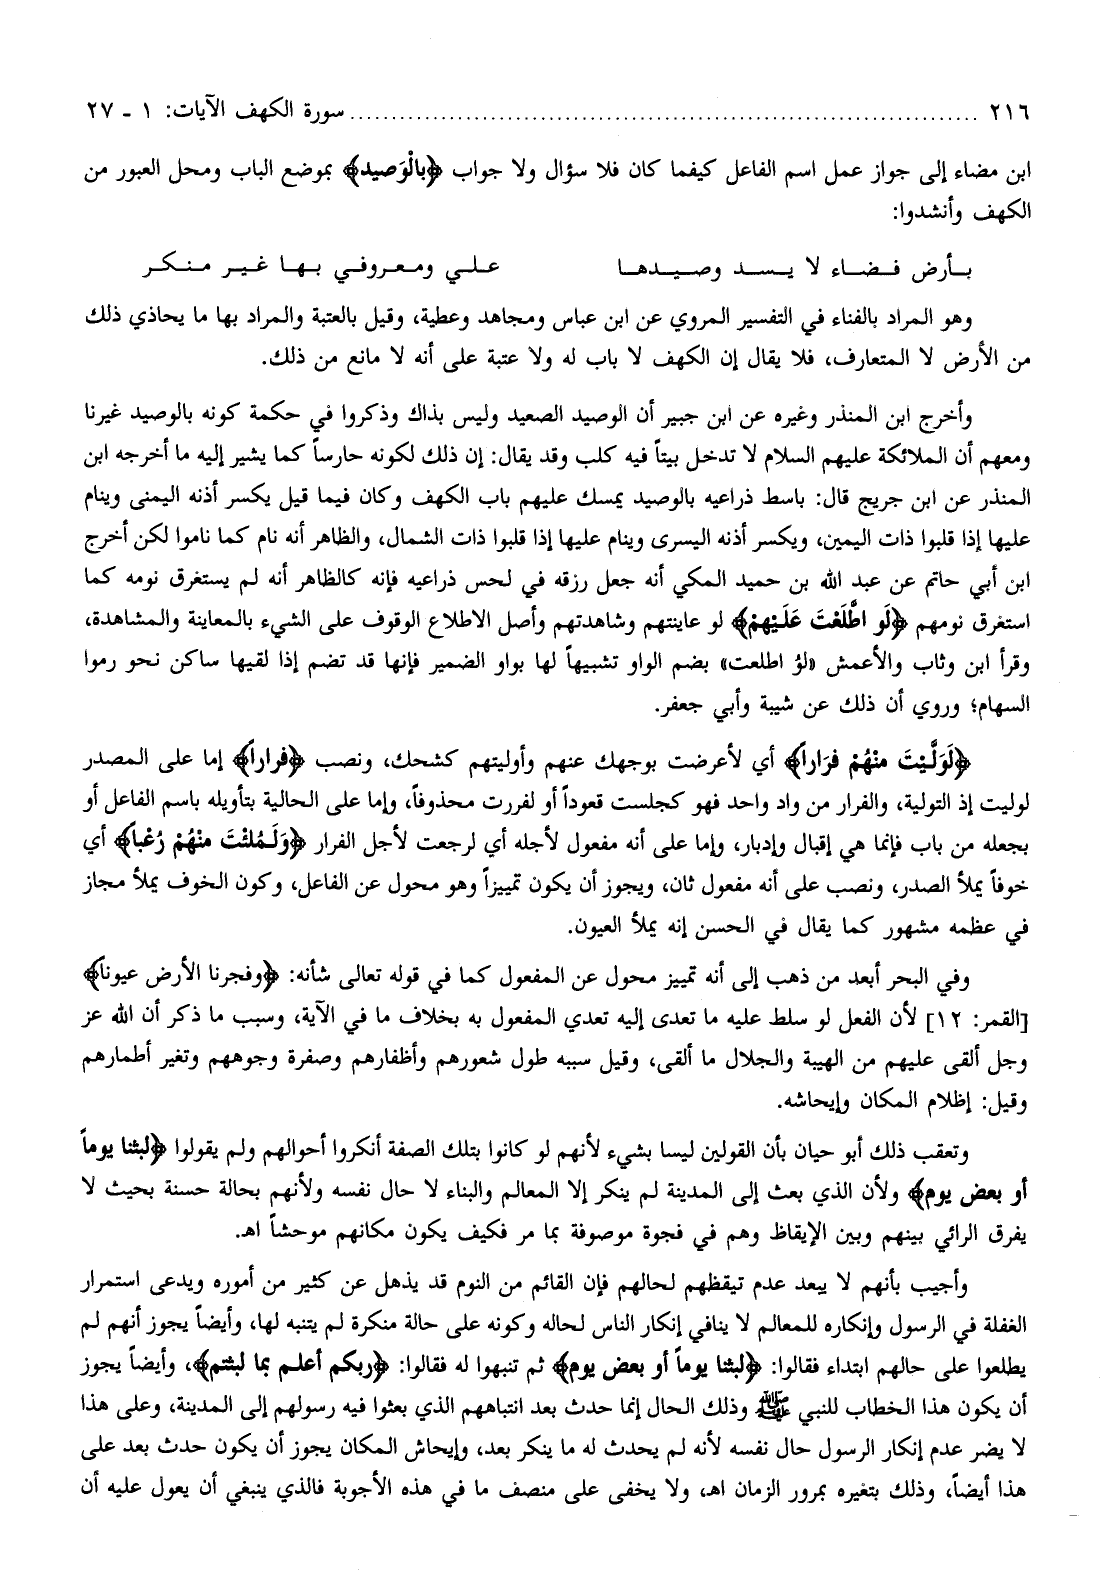 ٢١٦ ........................................................................ سورة الكهف الآيات: ١ - ٢٧
ابن مضاء إلى جواز عمل اسم الفاعل كيفما كان فلا سؤال ولا جواب ﴿بالْوَصيد﴾ بموضع الباب ومحل العبور من
الكهف وأنشدوا:
بـأرض فـضـاء لا يـسـد وصـيـدهـا علـي ومـعـروفـي بـهـا غـيـر مـنـكـر
وهو المراد بالفناء في التفسير المروي عن ابن عباس ومجاهد وعطية، وقيل بالعتبة والمراد بها ما يحاذي ذلك
من الأرض لا المتعارف، فلا يقال إن الكهف لا باب له ولا عتبة على أنه لا مانع من ذلك.
وأخرج ابن المنذر وغيره عن ابن جبير أن الوصيد الصعيد وليس بذاك وذكروا في حكمة كونه بالوصيد غيرنا
ومعهم أن الملائكة عليهم السلام لا تدخل بيتاً فيه كلب وقد يقال: إن ذلك لكونه حارساً كما يشير إليه ما أخرجه ابن
المنذر عن ابن جريج قال: باسط ذراعيه بالوصيد يمسك عليهم باب الكهف وكان فيما قيل يكسر أذنه اليمنى وينام
عليها إذا قلبوا ذات اليمين، ويكسر أذنه اليسرى وينام عليها إذا قلبوا ذات الشمال، والظاهر أنه نام كما ناموا لكن أخرج
ابن أبي حاتم عن عبد الله بن حميد المكي أنه جعل رزقه في لحس ذراعيه فإنه كالظاهر أنه لم يستغرق نومه كما
استغرق نومهم ﴿لَو اطَّلَعْتَ عَلَيْهِمْ﴾ لو عاينتهم وشاهدتهم وأصل الاطلاع الوقوف على الشيء بالمعاينة والمشاهدة،
وقرأ ابن وثاب والأعمش «لؤ اطلعت» بضم الواو تشبيهاً لها بواو الضمير فإنها قد تضم إذا لقيها ساكن نحو رموا
السهام؛ وروي أن ذلك عن شيبة وأبي جعفر.
﴿لَوَلَّيْتَ منْهُمْ فرَاراً﴾ أي لأعرضت بوجهك عنهم وأوليتهم كشحك، ونصب ﴿فراراً﴾ إما على المصدر
لوليت إذ التولية، والفرار من واد واحد فهو كجلست قعوداً أو لفررت محذوفاً، وإما على الحالية بتأويله باسم الفاعل أو
بجعله من باب فإنما هي إقبال وإدبار، وإما على أنه مفعول لأجله أي لرجعت لأجل الفرار ﴿وَلَمُلئْتَ منْهُمْ رُعْباً﴾ أي
خوفاً يملأ الصدر، ونصب على أنه مفعول ثان، ويجوز أن يكون تمييزاً وهو محول عن الفاعل، وكون الخوف يملأ مجاز
في عظمه مشهور كما يقال في الحسن إنه يملأ العيون.
وفي البحر أبعد من ذهب إلى أنه تمييز محول عن المفعول كما في قوله تعالى شأنه: ﴿وفجرنا الأرض عيوناً﴾
[القمر: ١٢] لأن الفعل لو سلط عليه ما تعدى إليه تعدي المفعول به بخلاف ما في الآية، وسبب ما ذكر أن الله عز
وجل ألقى عليهم من الهيبة والجلال ما ألقى، وقيل سببه طول شعورهم وأظفارهم وصفرة وجوههم وتغير أطمارهم
وقيل: إظلام المكان وإيحاشه.
وتعقب ذلك أبو حيان بأن القولين ليسا بشيء لأنهم لو كانوا بتلك الصفة أنكروا أحوالهم ولم يقولوا ﴿لبثنا يوماً
أو بعض يوم﴾ ولأن الذي بعث إلى المدينة لم ينكر إلا المعالم والبناء لا حال نفسه ولأنهم بحالة حسنة بحيث لا
يفرق الرائي بينهم وبين الإيقاظ وهم في فجوة موصوفة بما مر فكيف يكون مكانهم موحشاً اهـ.
وأجيب بأنهم لا يبعد عدم تيقظهم لحالهم فإن القائم من النوم قد يذهل عن كثير من أموره ويدعى استمرار
الغفلة في الرسول وإنكاره للمعالم لا ينافي إنكار الناس لحاله وكونه على حالة منكرة لم يتنبه لها، وأيضاً يجوز أنهم لم
يطلعوا على حالهم ابتداء فقالوا: ﴿لبثنا يوماً أو بعض يوم﴾ ثم تنبهوا له فقالوا: ﴿ربكم أعلم بما لبثتم﴾، وأيضاً يجوز
أن يكون هذا الخطاب للنبي ﷺ وذلك الحال إنما حدث بعد انتباههم الذي بعثوا فيه رسولهم إلى المدينة، وعلى هذا
لا يضر عدم إنكار الرسول حال نفسه لأنه لم يحدث له ما ينكر بعد، وإيحاش المكان يجوز أن يكون حدث بعد على
هذا أيضاً، وذلك بتغيره بمرور الزمان اهـ، ولا يخفى على منصف ما في هذه الأجوبة فالذي ينبغي أن يعول عليه أن